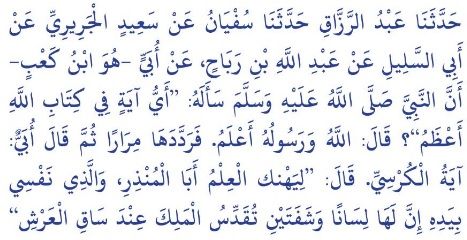 حَدَّثَنَا عَبْدُ الرَّزَّاقِ حَدَّثَنَا سُفْيَانُ عَنْ سَعِيدٍ الْجَرِيرِيِّ عَنْ
أَبِي السَّلِيلِ عَنْ عَبْدِ اللَّهِ بْنِ رَبَاحٍ، عَنْ أُبَيٍّ -هُوَ ابْنُ كَعْبٍ-
أَنَّ النَّبِيَّ صَلَّى اللَّهُ عَلَيْهِ وَسَلَّمَ سَأَلَهُ: ”أَيُّ آيَةٍ فِي كِتَابِ اللَّهِ
أَعْظَمُ“؟ قَالَ: اللَّهُ وَرَسُولُهُ أَعْلَمُ. فَرَدَّدَهَا مِرَارًا ثُمَّ قَالَ أُبَيٌّ:
آيَةُ الْكُرْسِيِّ. قَالَ: ”لِيَهْنك الْعِلْمُ أَبَا الْمُنْذِرِ، وَالَّذِي نَفْسِي
بِيَدِهِ إِنَّ لَهَا لِسَانًا وَشَفَتَيْنِ تُقَدِّسُ الْمَلِكَ عِنْدَ سَاقِ الْعَرْشِ“